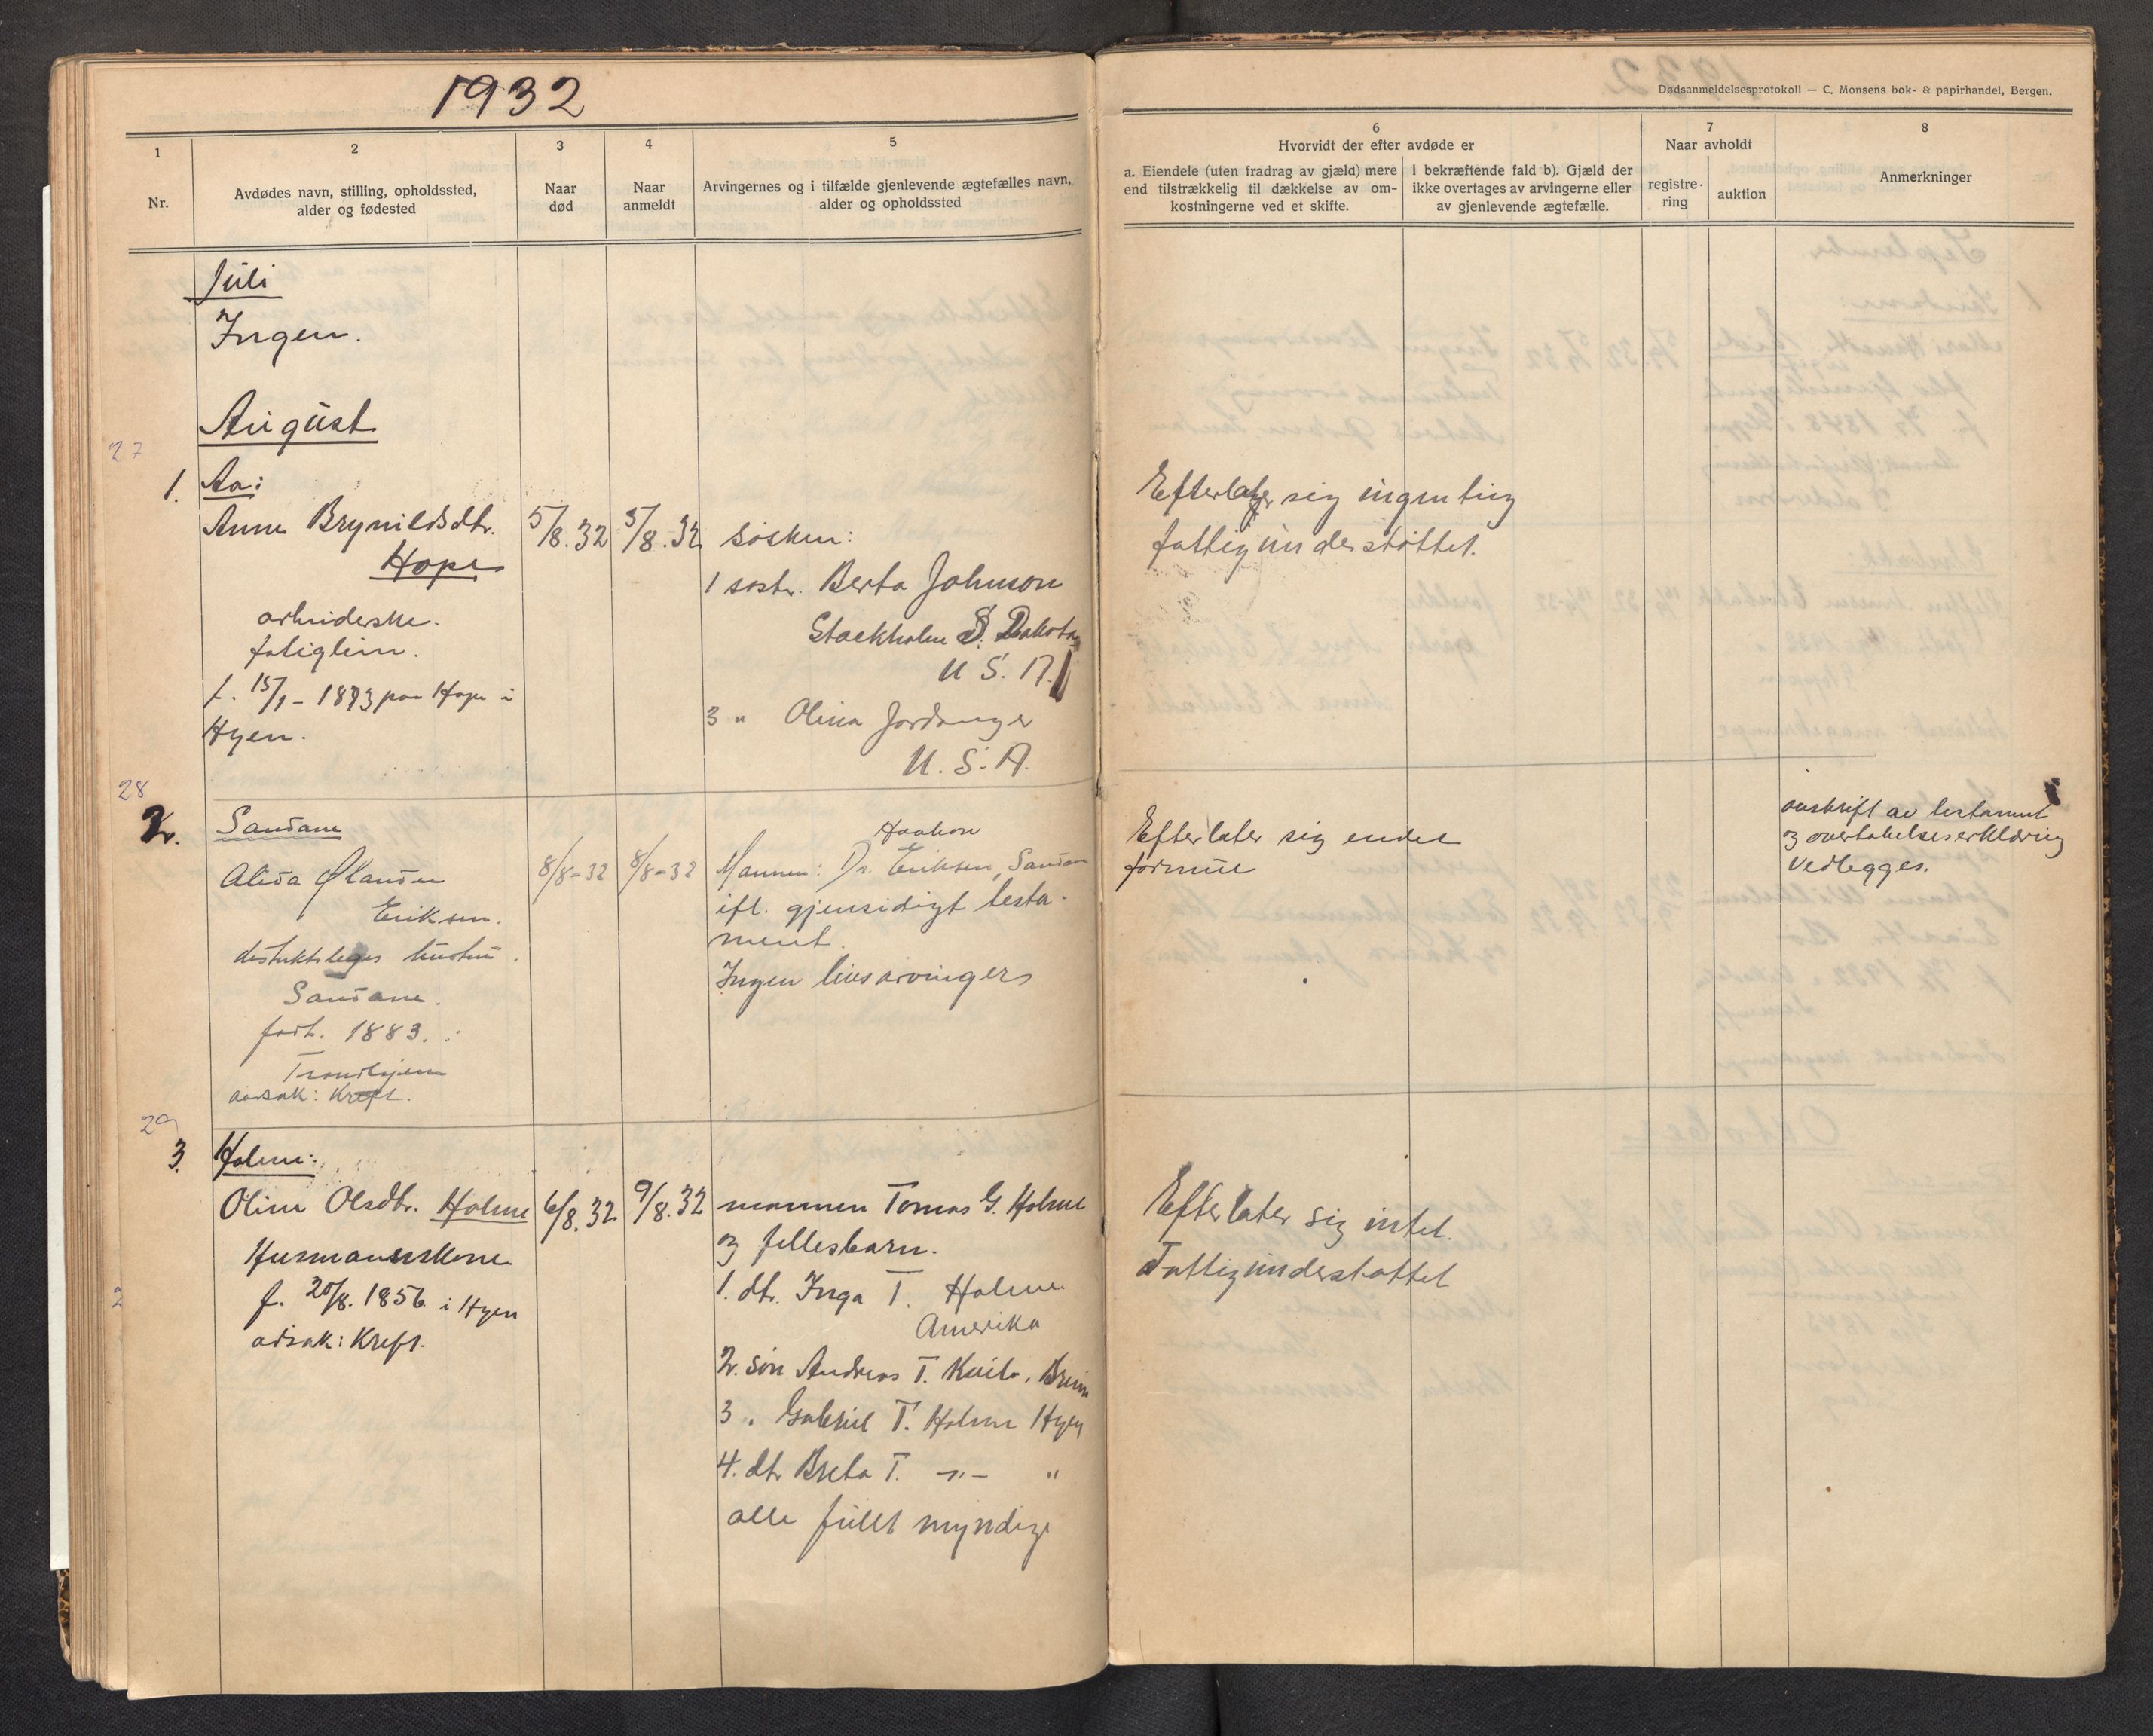 1932
Dødsanmeldelsesprotokoll — C. Monsens bok- & papirhandel, Bergen.
1
Nr.
2
Avdødes navn, stilling, opholdssted,
alder og fødested
3
Naar
død
4
Naar
anmeldt
5
Arvingernes og i tilfælde gjenlevende ægtefælles navn,
alder og opholdssted
6
Hvorvidt der efter avdøde er
a. Eiendele (uten fradrag av gjæld) mere
end tilstrækkelig til dækkelse av om-
kostningerne ved et skifte.
I bekræftende fald b). Gjæld der
ikke overtages av arvingerne eller
av gjenlevende ægtefælle.
7
Naar avholdt
registre-
ring
auktion
8
Anmerkninger
Juli
Ingen.
August
27
1.
Aa:
Anne Brynildsdtr.
Hope
arbeiderske.
fatiglem.
f. 15/1 - 1873 paa Hope i
Hyen.
5/8.32
5/8.32
søsken:
1 søstr. Berta Johnson
Stockholm S. Dakota
U.S.A.
3 " Olina Jordanger
U.S.A.
Efterlater sig ingenting
fattigunderstøttet.
28
2.
Sandane
Alida Ølander
Eriksen.
distriktsleges hustru.
Sandane.
født. 1883.
Trondhjem
aarsak: Kreft.
8/8-32
8/8-32
Haakon
Mannen: Dr. Eriksen, Sandane
ifl. gjensidigt testa-
ment.
Ingen livsarvingers
Efterlater sig endel
formue
avskrift av testament
og overtakelseserklæring
vedlegges.
29
3.
Holme:
Oline Olsdtr. Holme
Husmannskone
f. 20/8. 1856 i Hyen
aarsak: Kreft.
6/8.32
9/8.32
mannen Tomas G. Holme
og fellesbarn.
1. dtr. Inga T. Holme
Amerika
2. søn Andreas T. Kvile, Breim
3 " Gabriel T. Holme Hyen
4. dtr Breta T. -"- "
alle fullt myndige
Efterlater sig intet.
Fattigunderstøttet
2